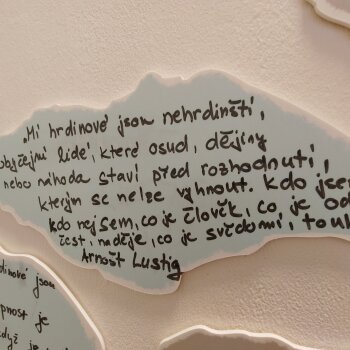 „Mí hrdinové jsou nehrdinští,
obyčejní lidé, které osud, dějiny
nebo náhoda staví před rozhodnutí,
kterým se nelze vyhnout. Kdo jsem,
kdo nejsem, co je člověk, co je od
čest, naděje, co je svědomí, touh
Arnošt Lustig
dinové jsou
pnost je